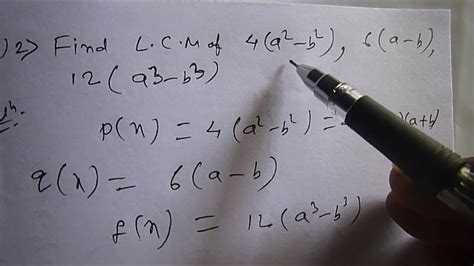 2) Find L.C.M of 4(a²-b²), 6(a-b),
12(a³-b³)
p(x) = 4(a²-b²) = )(a+b)
q(x) = 6(a-b)
f(x) = 12(a³-b³)